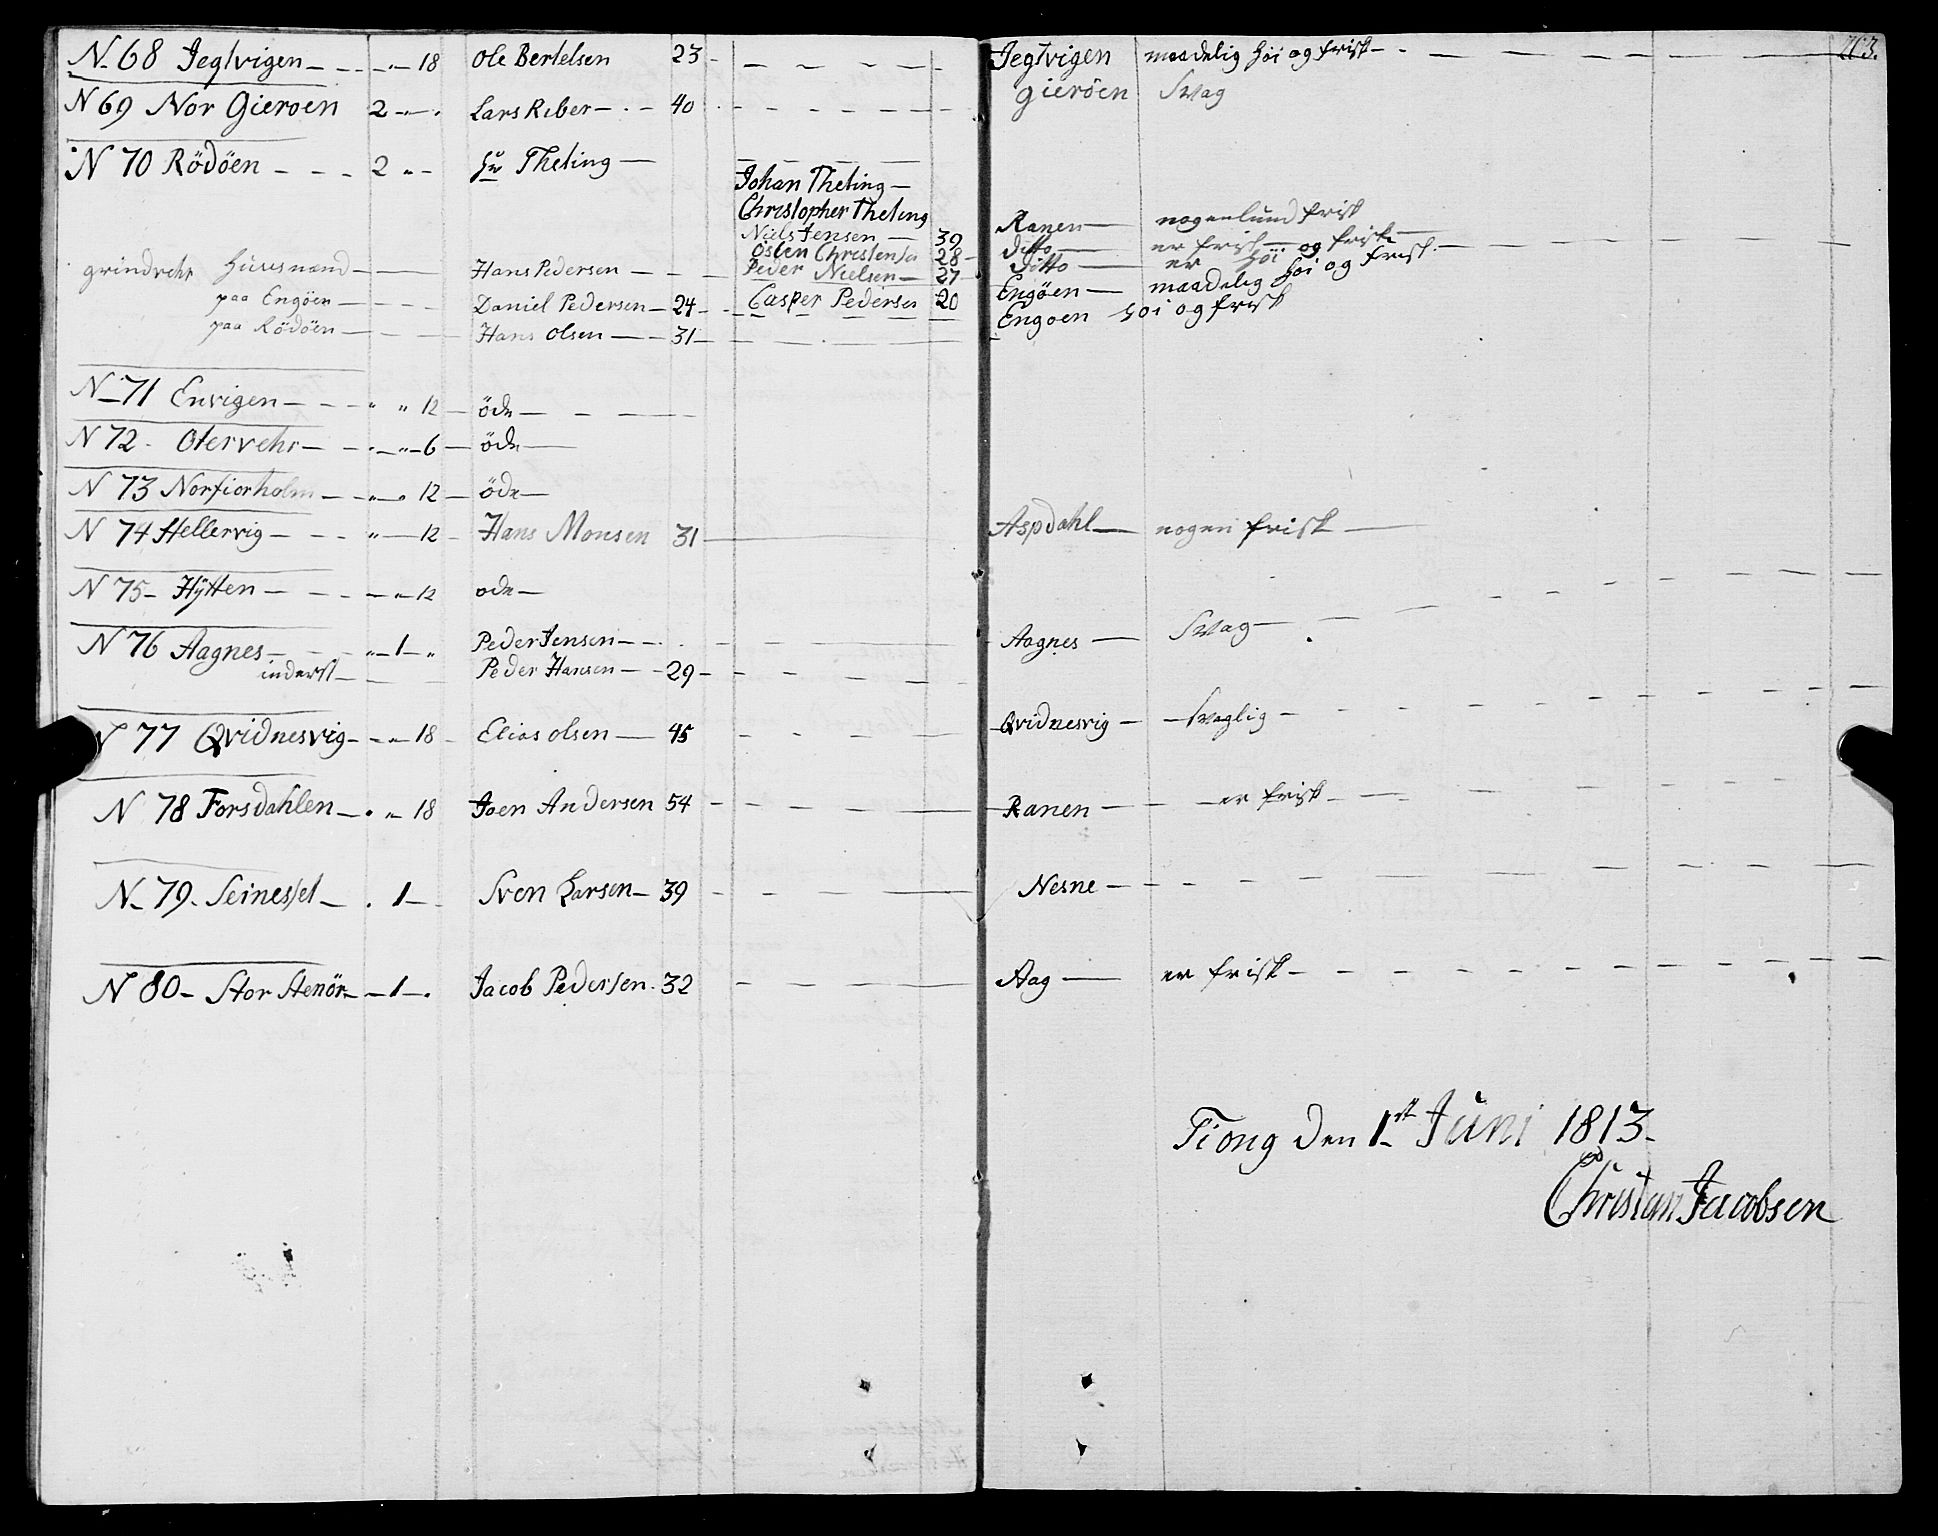 263.
N 68 Jegtvigen 18 Ole Bertelsen 23 Jegtvigen maadelig høi og frisk
N 69 Nor Gieroen 2 Lars Riber 40 gieröen Svag
N 70 Rödöen 2 Hr Theting
Johan Theting
Christopher Theting
Niels Jensen 39 Ranen nogenlund frisk
Osten Christensen 28 ditto er frisk
grindvehr Huusmænd Hans Pedersen Peder Nielsen 27 Ditto er høi og frisk
paa Engöen Daniel Pedersen 24 Casper Pedersen 20 Engöen maadelig høi og frisk
paa Rödöen Hans Olsen 31 Engoen høi og frisk
N 71 Envigen 12 öde
N 72 Otervehr 6 öde
N 73 Norfiorholm 12 öde
N 74 Hellervig 12 Hans Monsen 31 Aspdahl nogen frisk
N 75 Hÿtten 12 ode
N 76 Aagnes 1 Peder Jensen Aagnes Svag
inderst Peder Hansen 29
N 77 Qvidnesvig 18 Elias Olsen 45 Qvidnesvig svaglig
N 78 Forsdahlen 18 Joen Andersen 54 Ranen er frisk
N 79 Seinesset 1 Sven Larsen 39 Nesne
N 80 Stor Stenör 1 Jacob Pedersen 32 Aag er frisk
Tiong den 1st Juni 1813
Christan Jacobsen